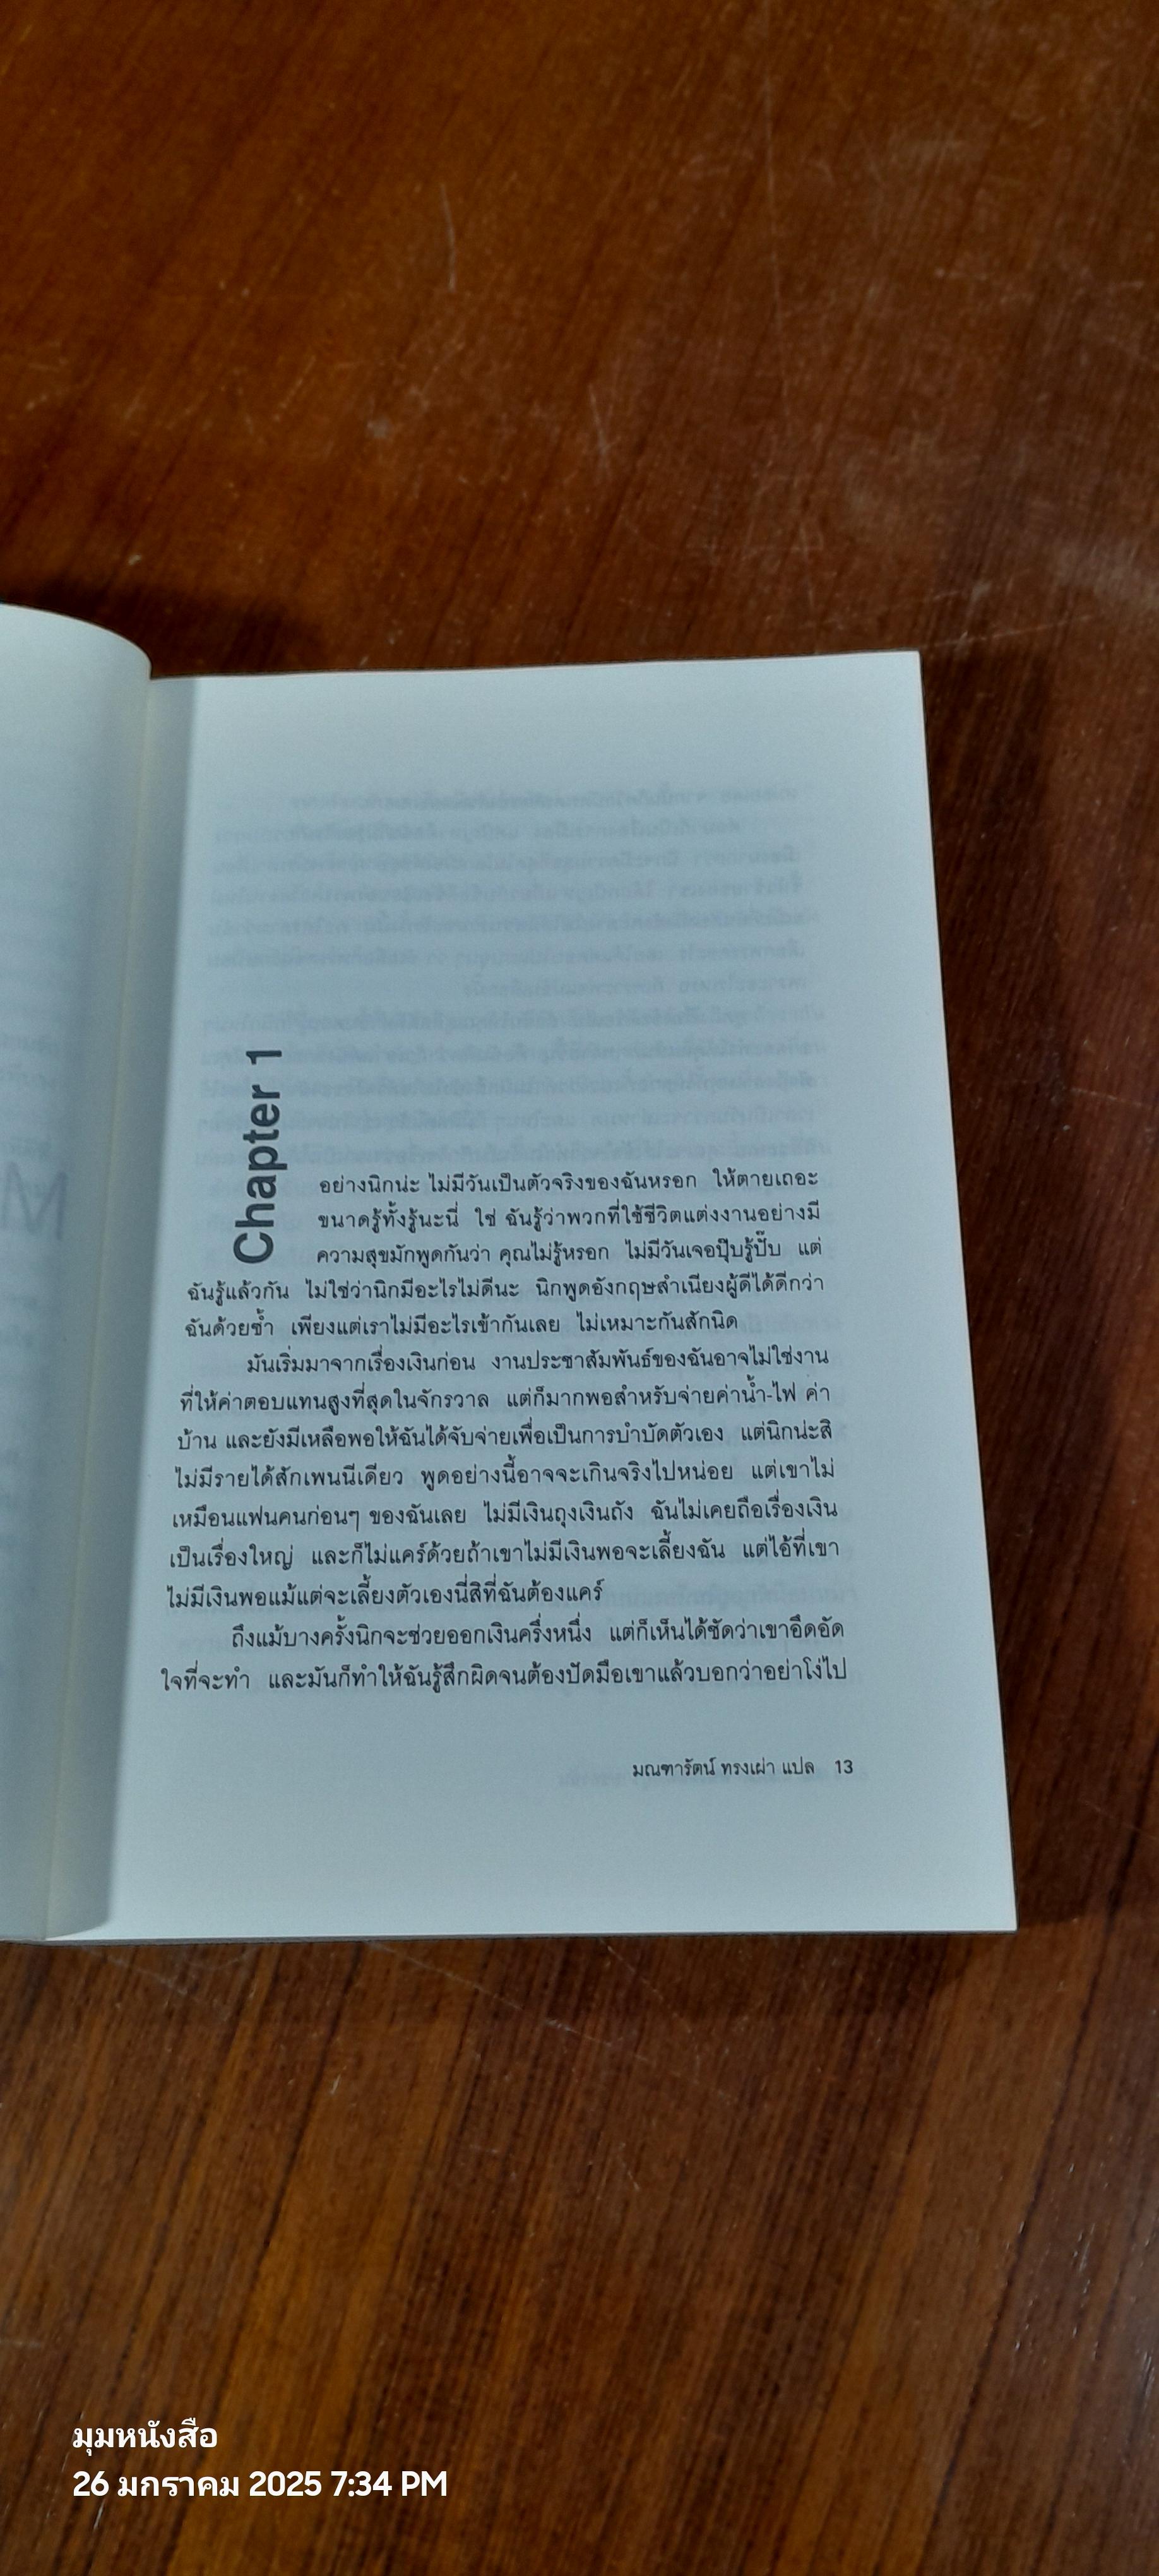 Chapter 1
อย่างนิกน่ะ ไม่มีวันเป็นตัวจริงของฉันหรอก ให้ตายเถอะ
ขนาดรู้ทั้งรู้นะนี่ ใช่ ฉันรู้ว่าพวกที่ใช้ชีวิตแต่งงานอย่างมี
ความสุขมักพูดกันว่า คุณไม่รู้หรอก ไม่มีวันเจอปุ๊บรู้ปั๊บ แต่
ฉันรู้แล้วกัน ไม่ใช่ว่านิกมีอะไรไม่ดีนะ นิกพูดอังกฤษสำเนียงผู้ดีได้ดีกว่า
ฉันด้วยซ้ำ เพียงแต่เราไม่มีอะไรเข้ากันเลย ไม่เหมาะกันสักนิด
มันเริ่มมาจากเรื่องเงินก่อน งานประชาสัมพันธ์ของฉันอาจไม่ใช่งาน
ที่ให้ค่าตอบแทนสูงที่สุดในจักรวาล แต่ก็มากพอสำหรับจ่ายค่าน้ำ-ไฟ ค่า
บ้าน และยังมีเหลือพอให้ฉันได้จับจ่ายเพื่อเป็นการบำบัดตัวเอง แต่นิกน่ะสิ
ไม่มีรายได้สักเพนนีเดียว พูดอย่างนี้อาจจะเกินจริงไปหน่อย แต่เขาไม่
เหมือนแฟนคนก่อนๆ ของฉันเลย ไม่มีเงินถุงเงินถัง ฉันไม่เคยถือเรื่องเงิน
เป็นเรื่องใหญ่ และก็ไม่แคร์ด้วยถ้าเขาไม่มีเงินพอจะเลี้ยงฉัน แต่ไอ้ที่เขา
ไม่มีเงินพอแม้แต่จะเลี้ยงตัวเองนี่สิที่ฉันต้องแคร์
ถึงแม้บางครั้งนิกจะช่วยออกเงินครึ่งหนึ่ง แต่ก็เห็นได้ชัดว่าเขาอึดอัด
ใจที่จะทำ และมันก็ทำให้ฉันรู้สึกผิดจนต้องปัดมือเขาแล้วบอกว่าอย่าโง่ไป
มณฑารัตน์ ทรงเผ่า แปล 13
มุมหนังสือ
26 มกราคม 2025 7:34 PM